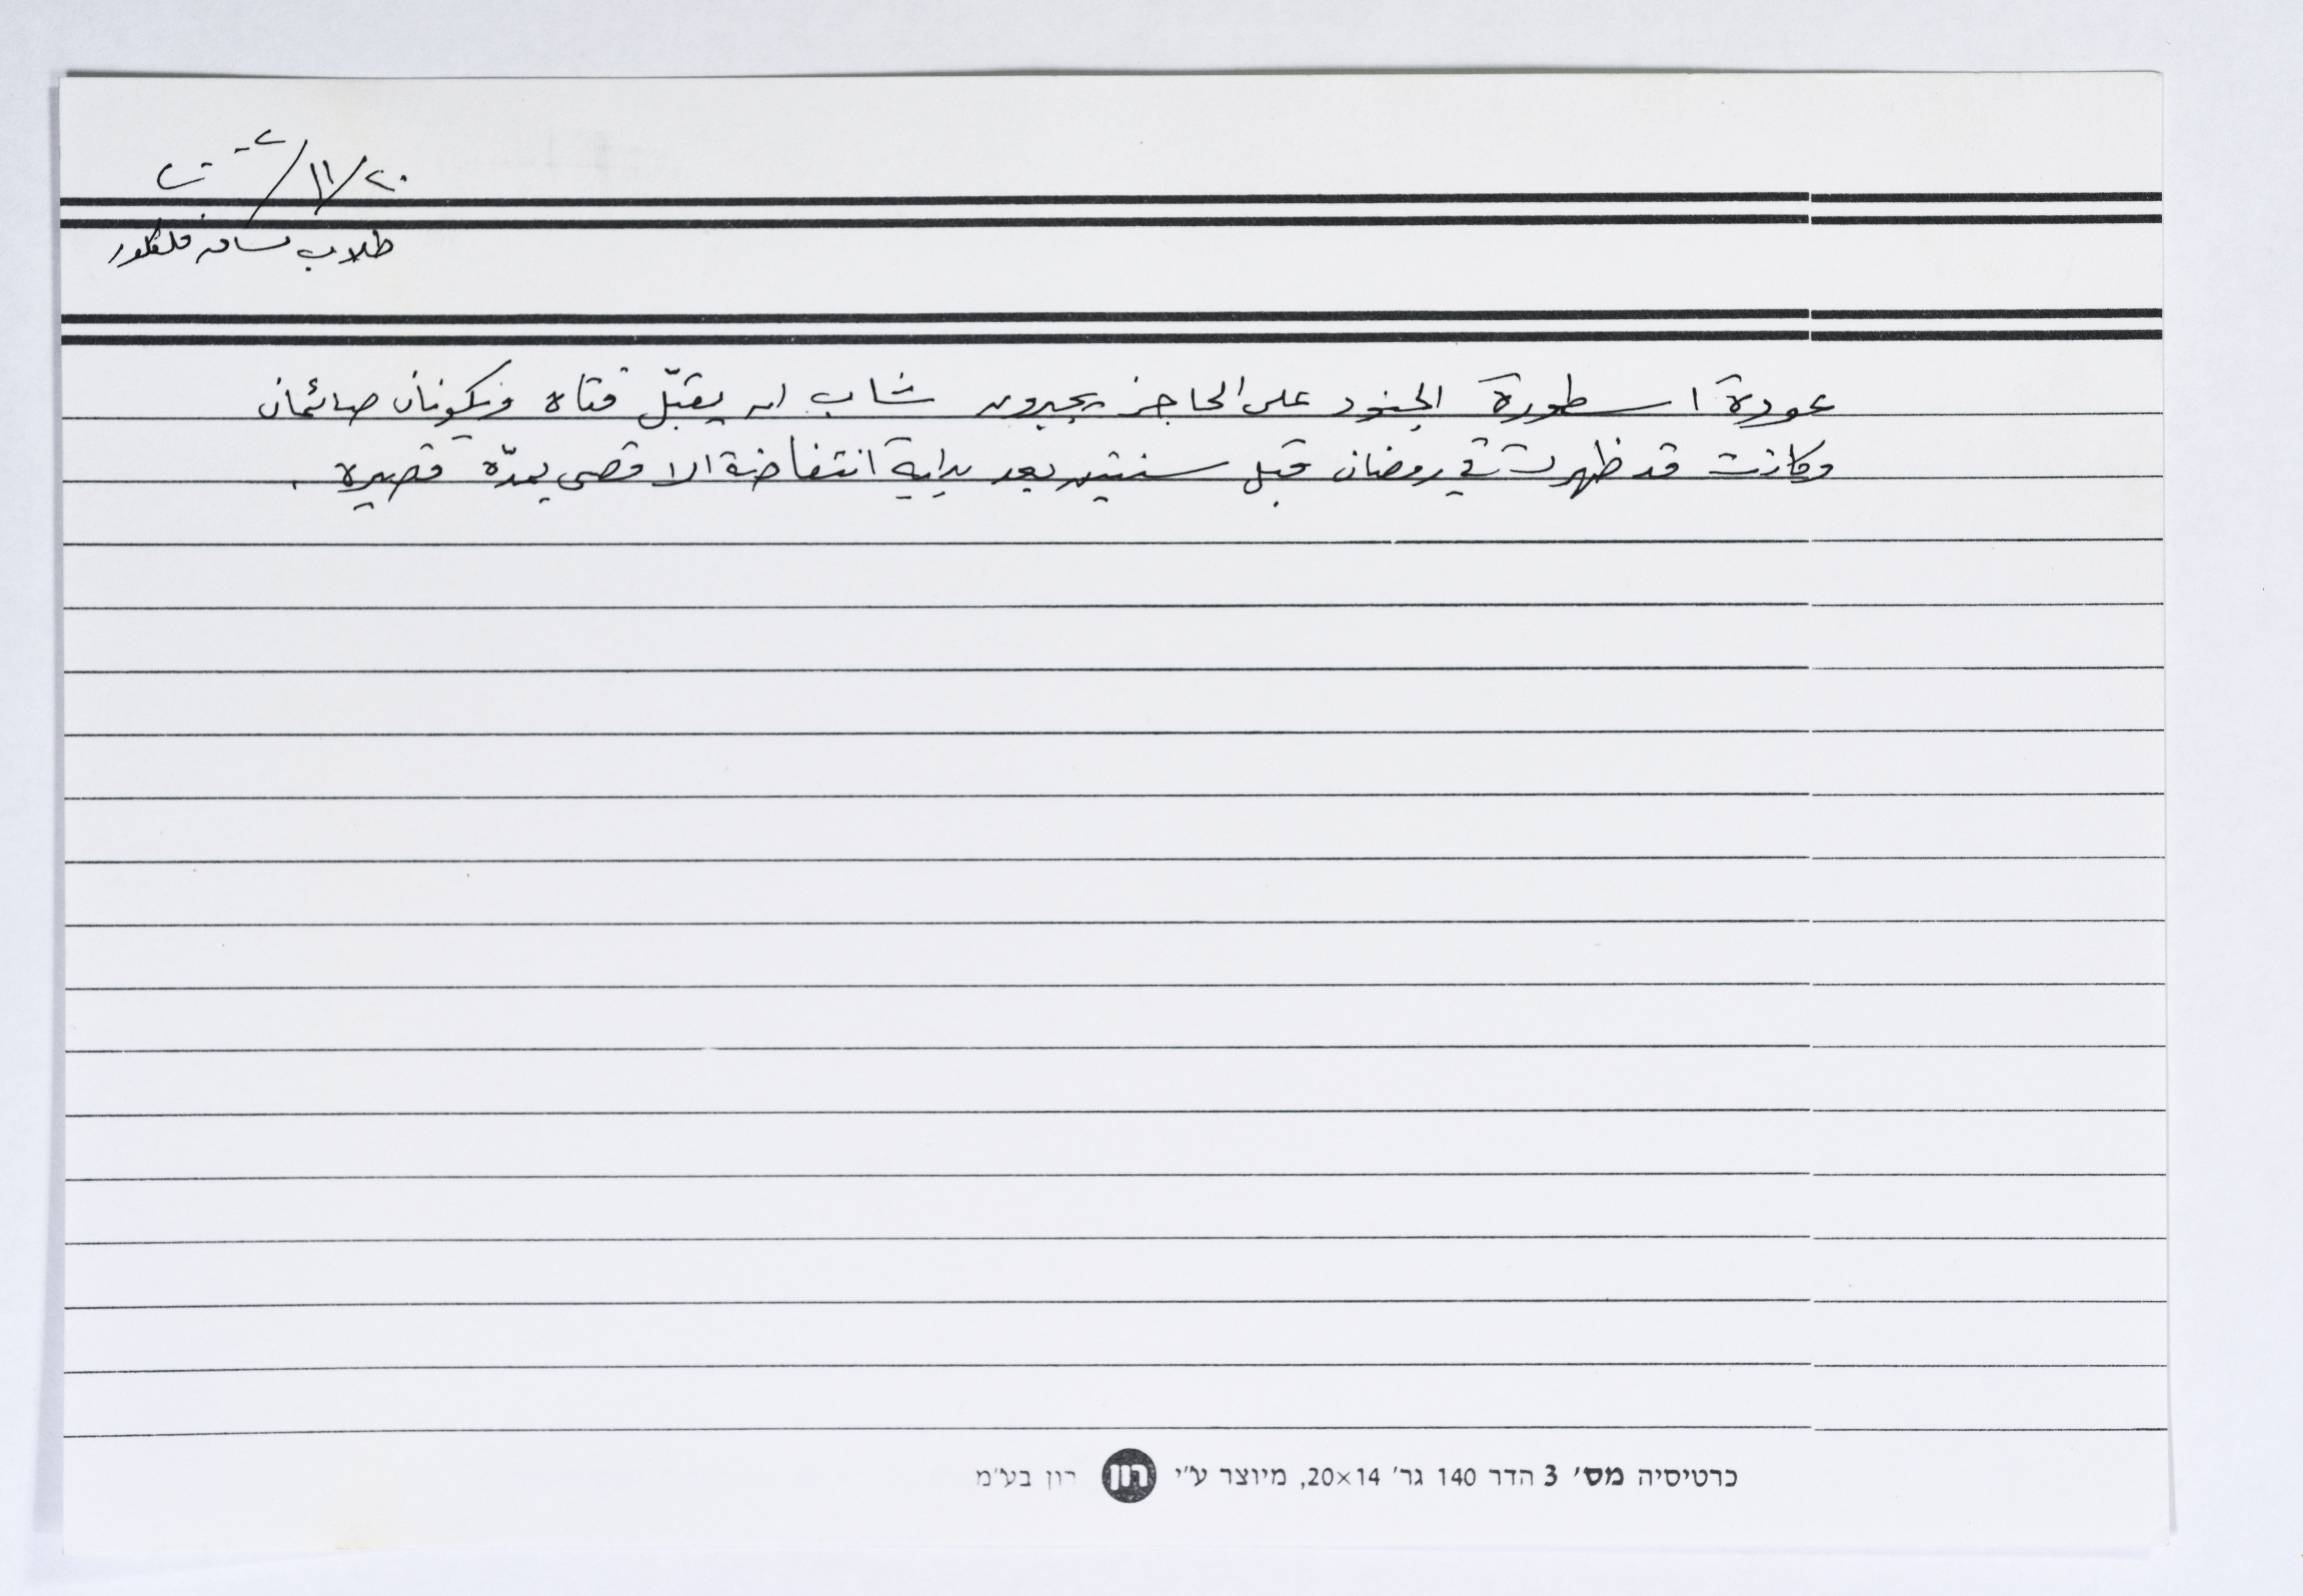 ٢٠/١١/٢٠٠٢
طلاب مساق فلكلور
عودة اسطورة الجنود على الحاجز يجبرون شاب ان يقبّل فتاه ويكونان صائمان
وكانت قد ظهرت في رمضان قبل سنتين بعد بداية انتفاضة الاقصى بمدّة قصيره .
כרטיסיה מס׳ 3 הדר 140 גר׳ 20×14, מיוצר ע״י רון רון בע״מ